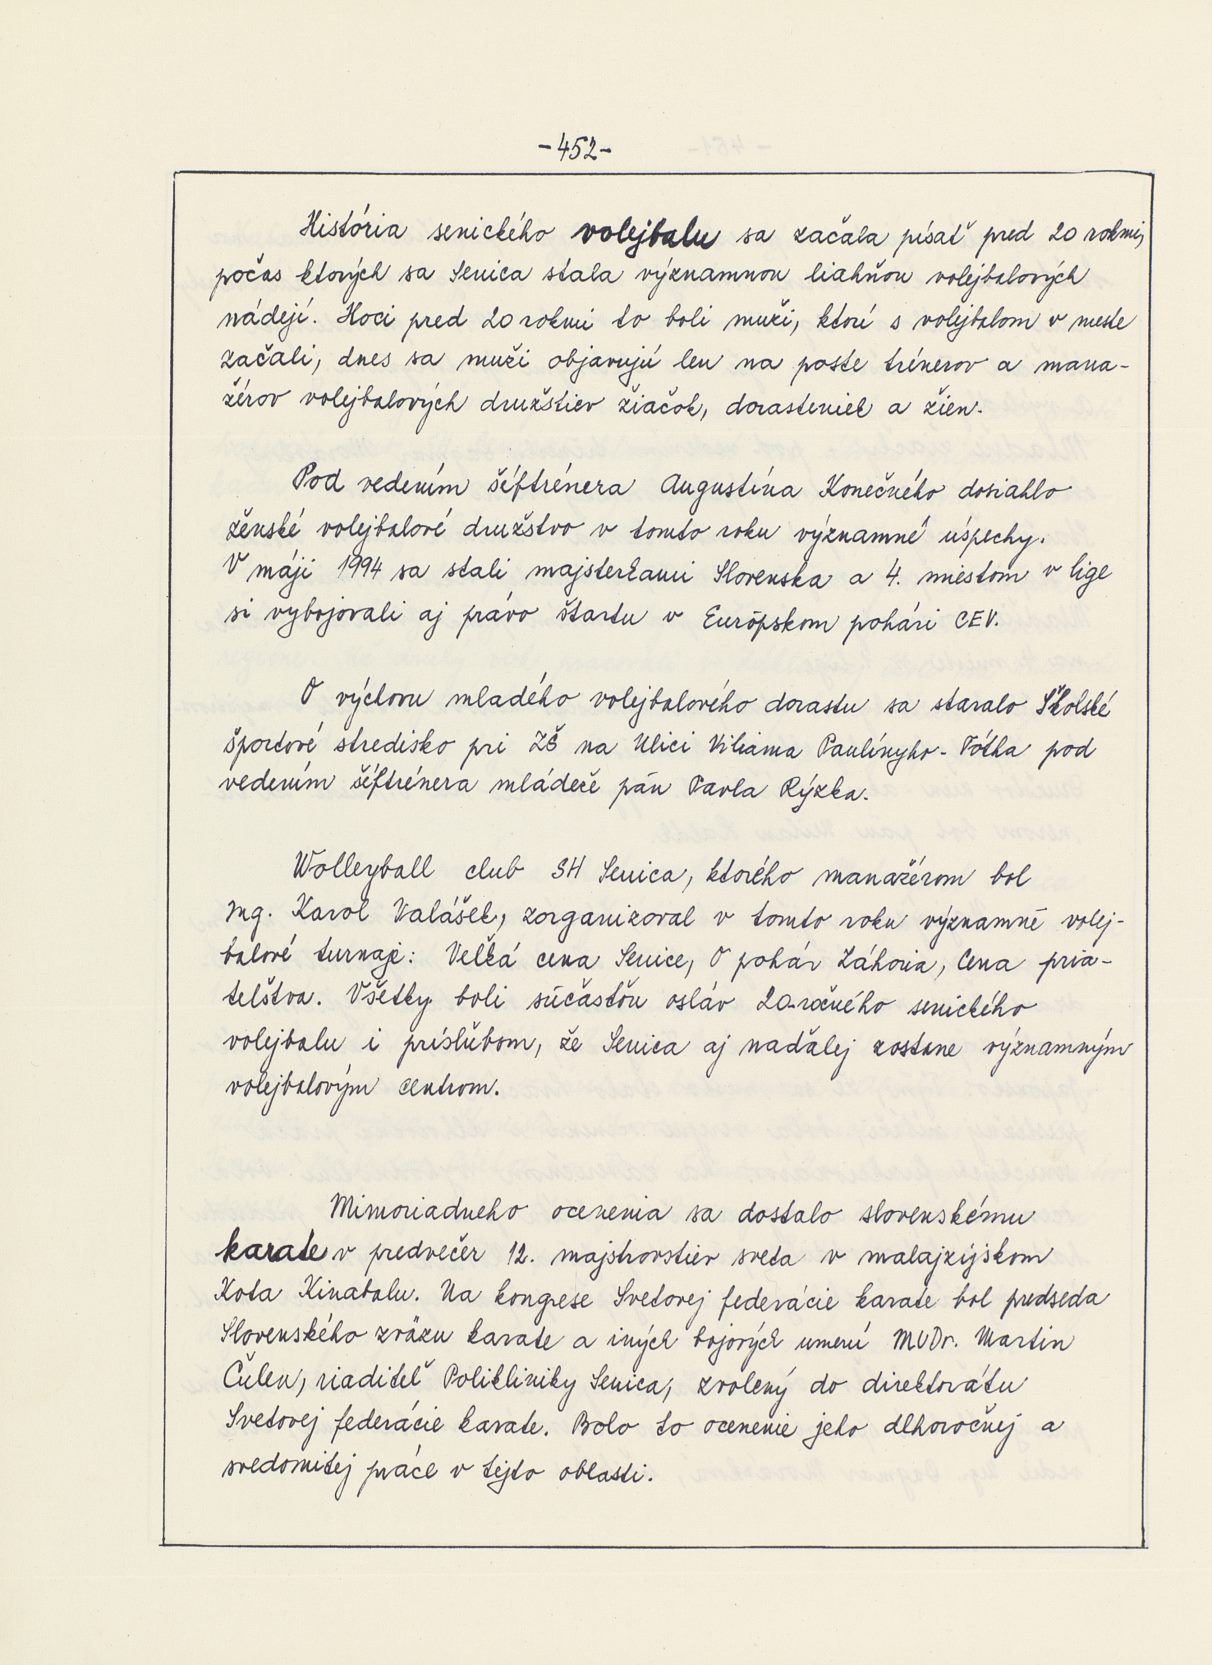 -452-
História senického volejbalu sa začala písať pred 20 rokmi,
počas ktorých sa Senica stala významnou liahňou volejbalových
nádejí. Hoci pred 20 rokmi to boli muži, ktorí s volejbalom v meste
začali, dnes sa muži objavujú len na poste trénerov a mana-
žérov volejbalových družstiev žiačok, dorasteniek a žien.
Pod vedením šéftrénera Augustína Konečného dosiahlo
ženské volejbalové družstvo v tomto roku významné úspechy.
V máji 1994 sa stali majsterkami Slovenska a 4. miestom v lige
si vybojovali aj právo štartu v Európskom pohári CEV.
O výchovu mladého volejbalového dorastu sa staralo Školské
športové stredisko pri ZŠ na Ulici Viliama Paulínyho-Tótha pod
vedením šéftrénera mládeže pán Pavla Rýzka.
Wolleyball club SH Senica, ktorého manažérom bol
Ing. Karol Valášek, zorganizoval v tomto roku významné volej-
balové turnaje: Veľká cena Senice, O pohár Záhoria, Cena pria-
teľstva. Všetky boli súčasťou osláv 20-ročného senického
volejbalu i prísľubom, že Senica aj naďalej zostane významným
volejbalovým centrom.
Mimoriadneho ocenenia sa dostalo slovenskému
karate v predvečer 12. majstrovstiev sveta v malajzijskom
Kota Kinabalu. Na kongrese Svetovej federácie karate bol predseda
Slovenského zväzu karate a iných bojových umení MUDr. Martin
Čulen, riaditeľ Polikliniky Senica, zvolený do direktorátu
Svetovej federácie karate. Bolo to ocenenie jeho dlhoročnej a
svedomitej práce v tejto oblasti.